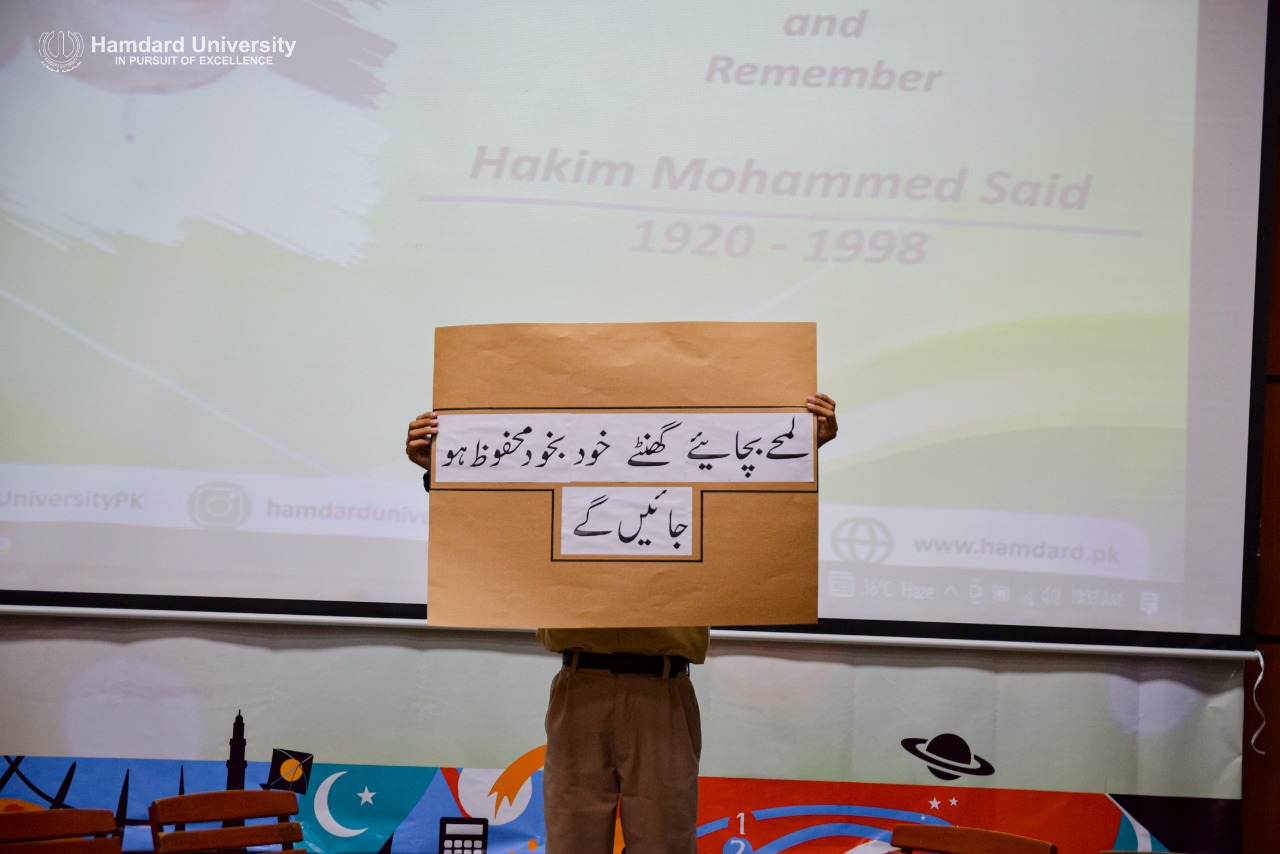 Hamdard University
IN PURSUIT OF EXCELLENCE
and
Remember
Hakim Mohammed Said
1920 - 1998
لمحے بچایئے گھنٹے خود بخود محفوظ ہو
جائیں گے
UniversityPK
hamdardunive
www.hamdard.pk
36°C Haze
10:33 AM
1
2